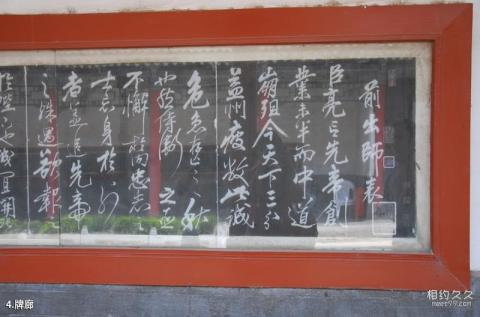 前出師表
臣亮言先帝創
業未半而中道
崩殂今天下三分
益州疲敝此誠
危急存亡之秋
也然侍衛之臣
不懈於內忠志之
士忘身於外
者蓋追先帝
之殊遇欲報
於陛下也誠宜開
4.牌廊
相约久久
meet99.com